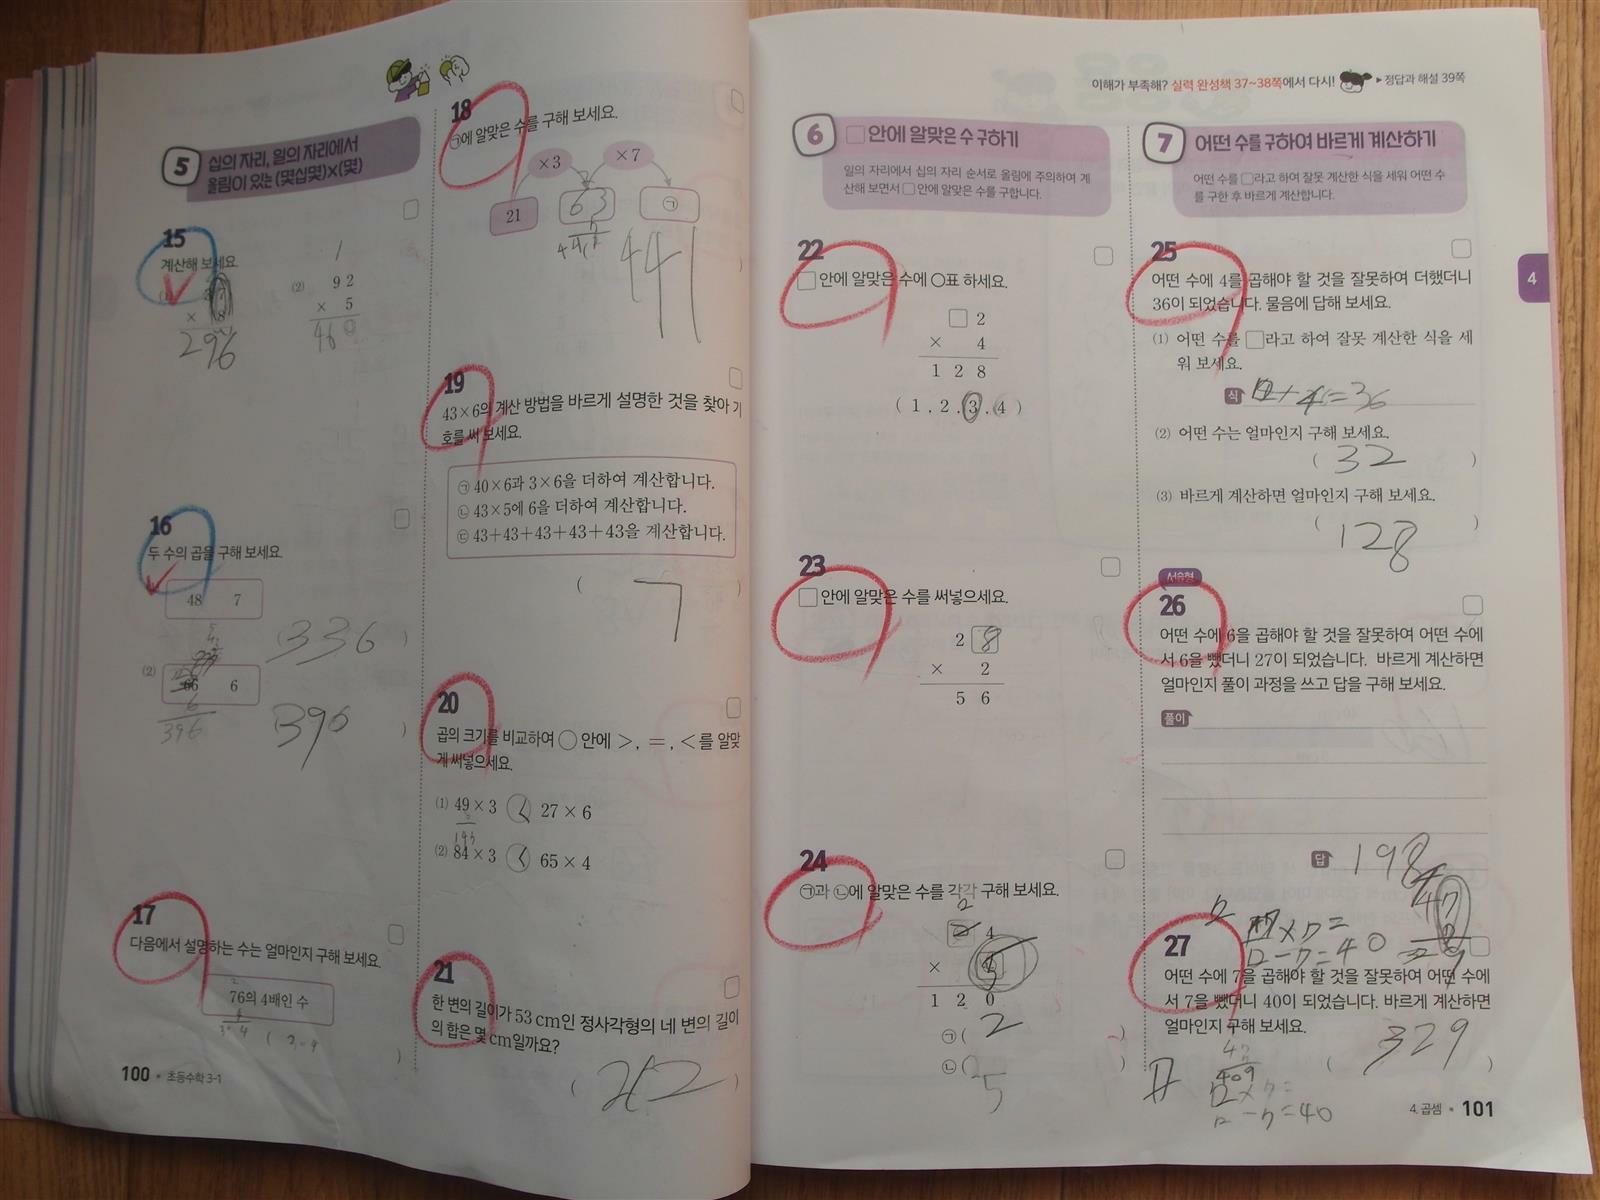 5 십의 자리, 일의 자리에서
올림이 있는 (몇십몇)×(몇)
15
계산해 보세요.
(1) 37
× 8
296
(2) 1
9 2
× 5
460
16
두 수의 곱을 구해 보세요.
48 7
336
(2) 66 6
6
396
396
17
다음에서 설명하는 수는 얼마인지 구해 보세요.
2
76의 4배인 수
4
100 • 초등수학 3-1
18
㉠에 알맞은 수를 구해 보세요.
×3 ×7
21 63 ㉠
441
19
43×6의 계산 방법을 바르게 설명한 것을 찾아 기
호를 써 보세요.
㉠ 40×6과 3×6을 더하여 계산합니다.
㉡ 43×5에 6을 더하여 계산합니다.
㉢ 43+43+43+43+43을 계산합니다.
( ㄱ )
20
곱의 크기를 비교하여 ○ 안에 >, =, <를 알맞
게 써넣으세요.
(1) 49×3 < 27×6
(2) 84×3 < 65×4
21
한 변의 길이가 53 cm인 정사각형의 네 변의 길이
의 합은 몇 cm일까요?
( 212 )
이해가 부족해? 실력 완성책 37~38쪽에서 다시! ▶ 정답과 해설 39쪽
6 □ 안에 알맞은 수 구하기
일의 자리에서 십의 자리 순서로 올림에 주의하여 계
산해 보면서 □ 안에 알맞은 수를 구합니다.
22
□ 안에 알맞은 수에 ○표 하세요.
□ 2
× 4
1 2 8
( 1 . 2 . 3 . 4 )
23
□ 안에 알맞은 수를 써넣으세요.
2 8
× 2
5 6
24
㉠과 ㉡에 알맞은 수를 각각 구해 보세요.
4
×
1 2 0
㉠( 2 )
㉡( 5 )
7 어떤 수를 구하여 바르게 계산하기
어떤 수를 □라고 하여 잘못 계산한 식을 세워 어떤 수
를 구한 후 바르게 계산합니다.
4
25
어떤 수에 4를 곱해야 할 것을 잘못하여 더했더니
36이 되었습니다. 물음에 답해 보세요.
(1) 어떤 수를 □라고 하여 잘못 계산한 식을 세
워 보세요.
식 □+4=36
(2) 어떤 수는 얼마인지 구해 보세요.
( 32 )
(3) 바르게 계산하면 얼마인지 구해 보세요.
( 128 )
서술형
26
어떤 수에 6을 곱해야 할 것을 잘못하여 어떤 수에
서 6을 뺐더니 27이 되었습니다. 바르게 계산하면
얼마인지 풀이 과정을 쓰고 답을 구해 보세요.
풀이
답 198
□-7=40
27
어떤 수에 7을 곱해야 할 것을 잘못하여 어떤 수에
서 7을 뺐더니 40이 되었습니다. 바르게 계산하면
얼마인지 구해 보세요.
( 329 )
47
409
□×7=
□-7=40
4. 곱셈 • 101